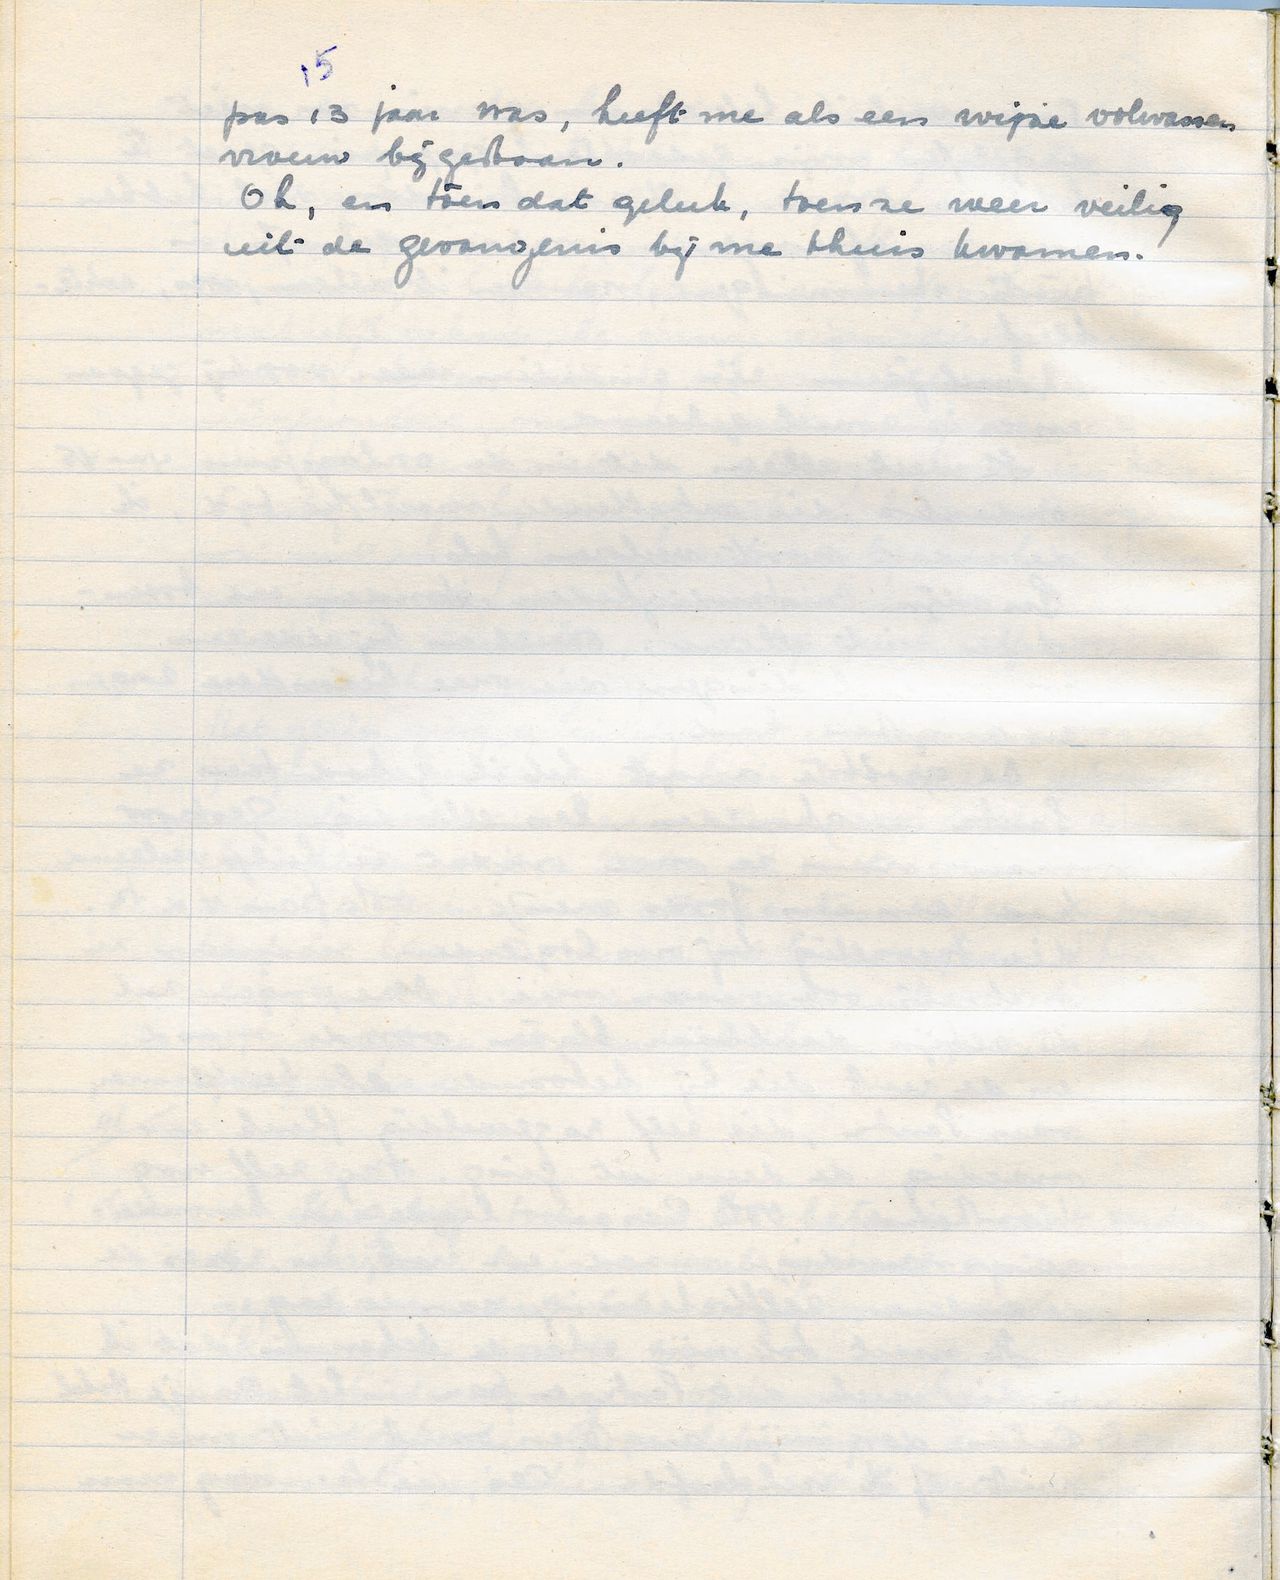 15
pas 13 jaar was, heeft me als een wijze volwassen
vrouw bijgestaan.
Oh, en tóen dat geluk, toen ze weer veilig
uit de gevangenis bij me thuis kwamen.